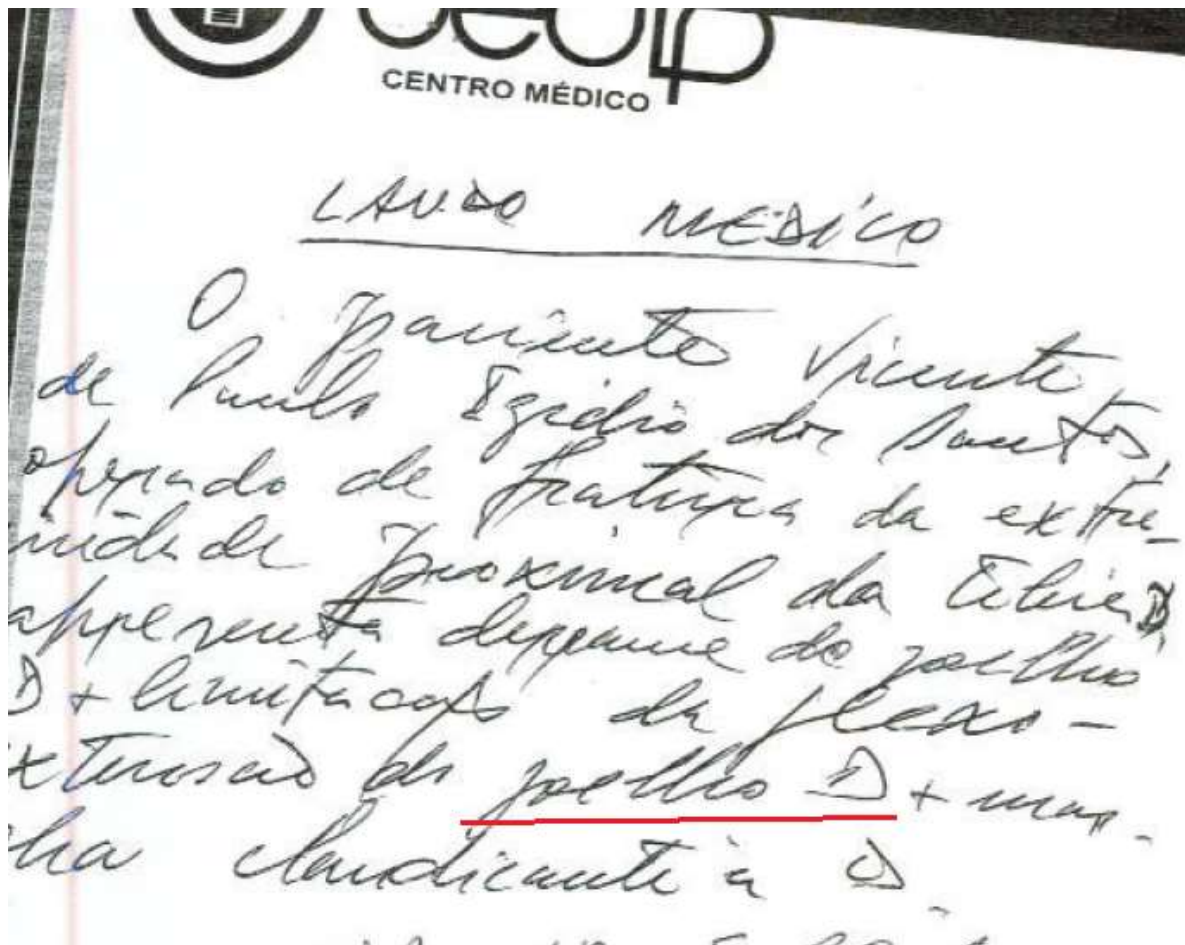 CENTRO MÉDICO
LAUDO MEDICO
O paciente Vicente
de Paulo Egidio dos Santos,
operado de fratura da extre-
midade proximal da tibia D,
apresenta derrame do joelho
D + limitação da flexo-
extensão do joelho D + mar-
cha claudicante à D